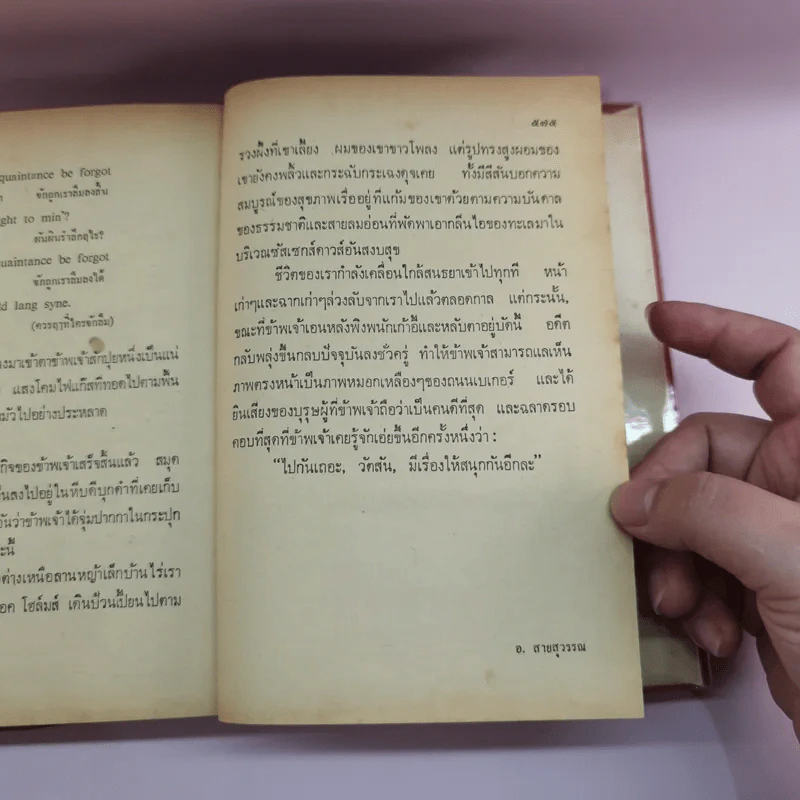 quaintance be forgot
จักถูกเราลืมลงสิ้น
ght to min'?
ผันผินรำลึกฤๅไร?
quaintance be forgot
จักถูกเราลืมลงได้
d lang syne.
(ควรฤๅที่ใครจักลืม)
งมาเข้าตาข้าพเจ้าสักปุยหนึ่งเป็นแน่
แสงโคมไฟแก๊สที่ทอดไปตามพื้น
มัวไปอย่างประหลาด
กิจของข้าพเจ้าเสร็จสิ้นแล้ว สมุด
นลงไปอยู่ในหีบดีบุกดำที่เคยเก็บ
อันว่าข้าพเจ้าได้จุ่มปากกาในกระปุก
ะนี้
ต่างเหนือลานหญ้าเล็กบ้านไร่เรา
อค โฮล์มส์ เดินป้วนเปี้ยนไปตาม
๕๗๕
รวงผึ้งที่เขาเลี้ยง ผมของเขาขาวโพลง แต่รูปทรงสูงผอมของ
เขายังคงพลิ้วและกระฉับกระเฉงดุจเคย ทั้งมีสีสันบอกความ
สมบูรณ์ของสุขภาพเรื่ออยู่ที่แก้มของเขาด้วยตามความบันดาล
ของธรรมชาติและสายลมอ่อนที่พัดพาเอากลิ่นไอของทะเลมาใน
บริเวณซัสเซกส์ดาวส์อันสงบสุข
ชีวิตของเรากำลังเคลื่อนใกล้สนธยาเข้าไปทุกที หน้า
เก่าๆและฉากเก่าๆล่วงลับจากเราไปแล้วตลอดกาล แต่กระนั้น,
ขณะที่ข้าพเจ้าเอนหลังพิงพนักเก้าอี้และหลับตาอยู่บัดนี้ อดีต
กลับพลุ่งขึ้นกลบปัจจุบันลงชั่วครู่ ทำให้ข้าพเจ้าสามารถแลเห็น
ภาพตรงหน้าเป็นภาพหมอกเหลืองๆของถนนเบเกอร์ และได้
ยินเสียงของบุรุษผู้ที่ข้าพเจ้าถือว่าเป็นคนดีที่สุด และฉลาดรอบ
คอบที่สุดที่ข้าพเจ้าเคยรู้จักเอ่ยขึ้นอีกครั้งหนึ่งว่า :
“ไปกันเถอะ, วัตสัน, มีเรื่องให้สนุกกันอีกละ”
อ. สายสุวรรณ